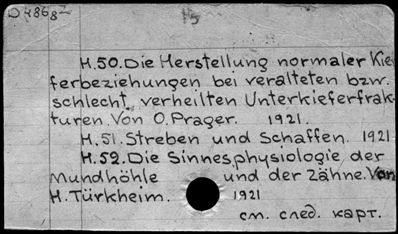 D 486 8-2
15
H.50. Die Herstellung normaler Kie-
ferbeziehungen bei veralteten bzw.
schlecht verheilten Unterkieferfrak-
turen. Von O. Prager. 1921.
H.51. Streben und Schaffen. 1921
H.52. Die Sinnesphysiologie der
Mundhöhle und der Zähne. Von
H. Türkheim. 1921
см. след. карт.